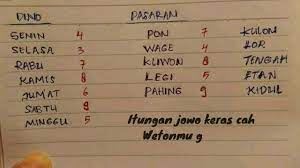 DINO PASARAN
SENIN 4 PON 7 KULON
SELASA 3 WAGE 4 LOR
RABU 7 KLIWON 8 TENGAH
KAMIS 8 LEGI 5 ETAN
JUM'AT 6 PAHING 9 KIDUL
SABTU 9
MINGGU 5
Hungan jowo keras cah
Wetonmu g